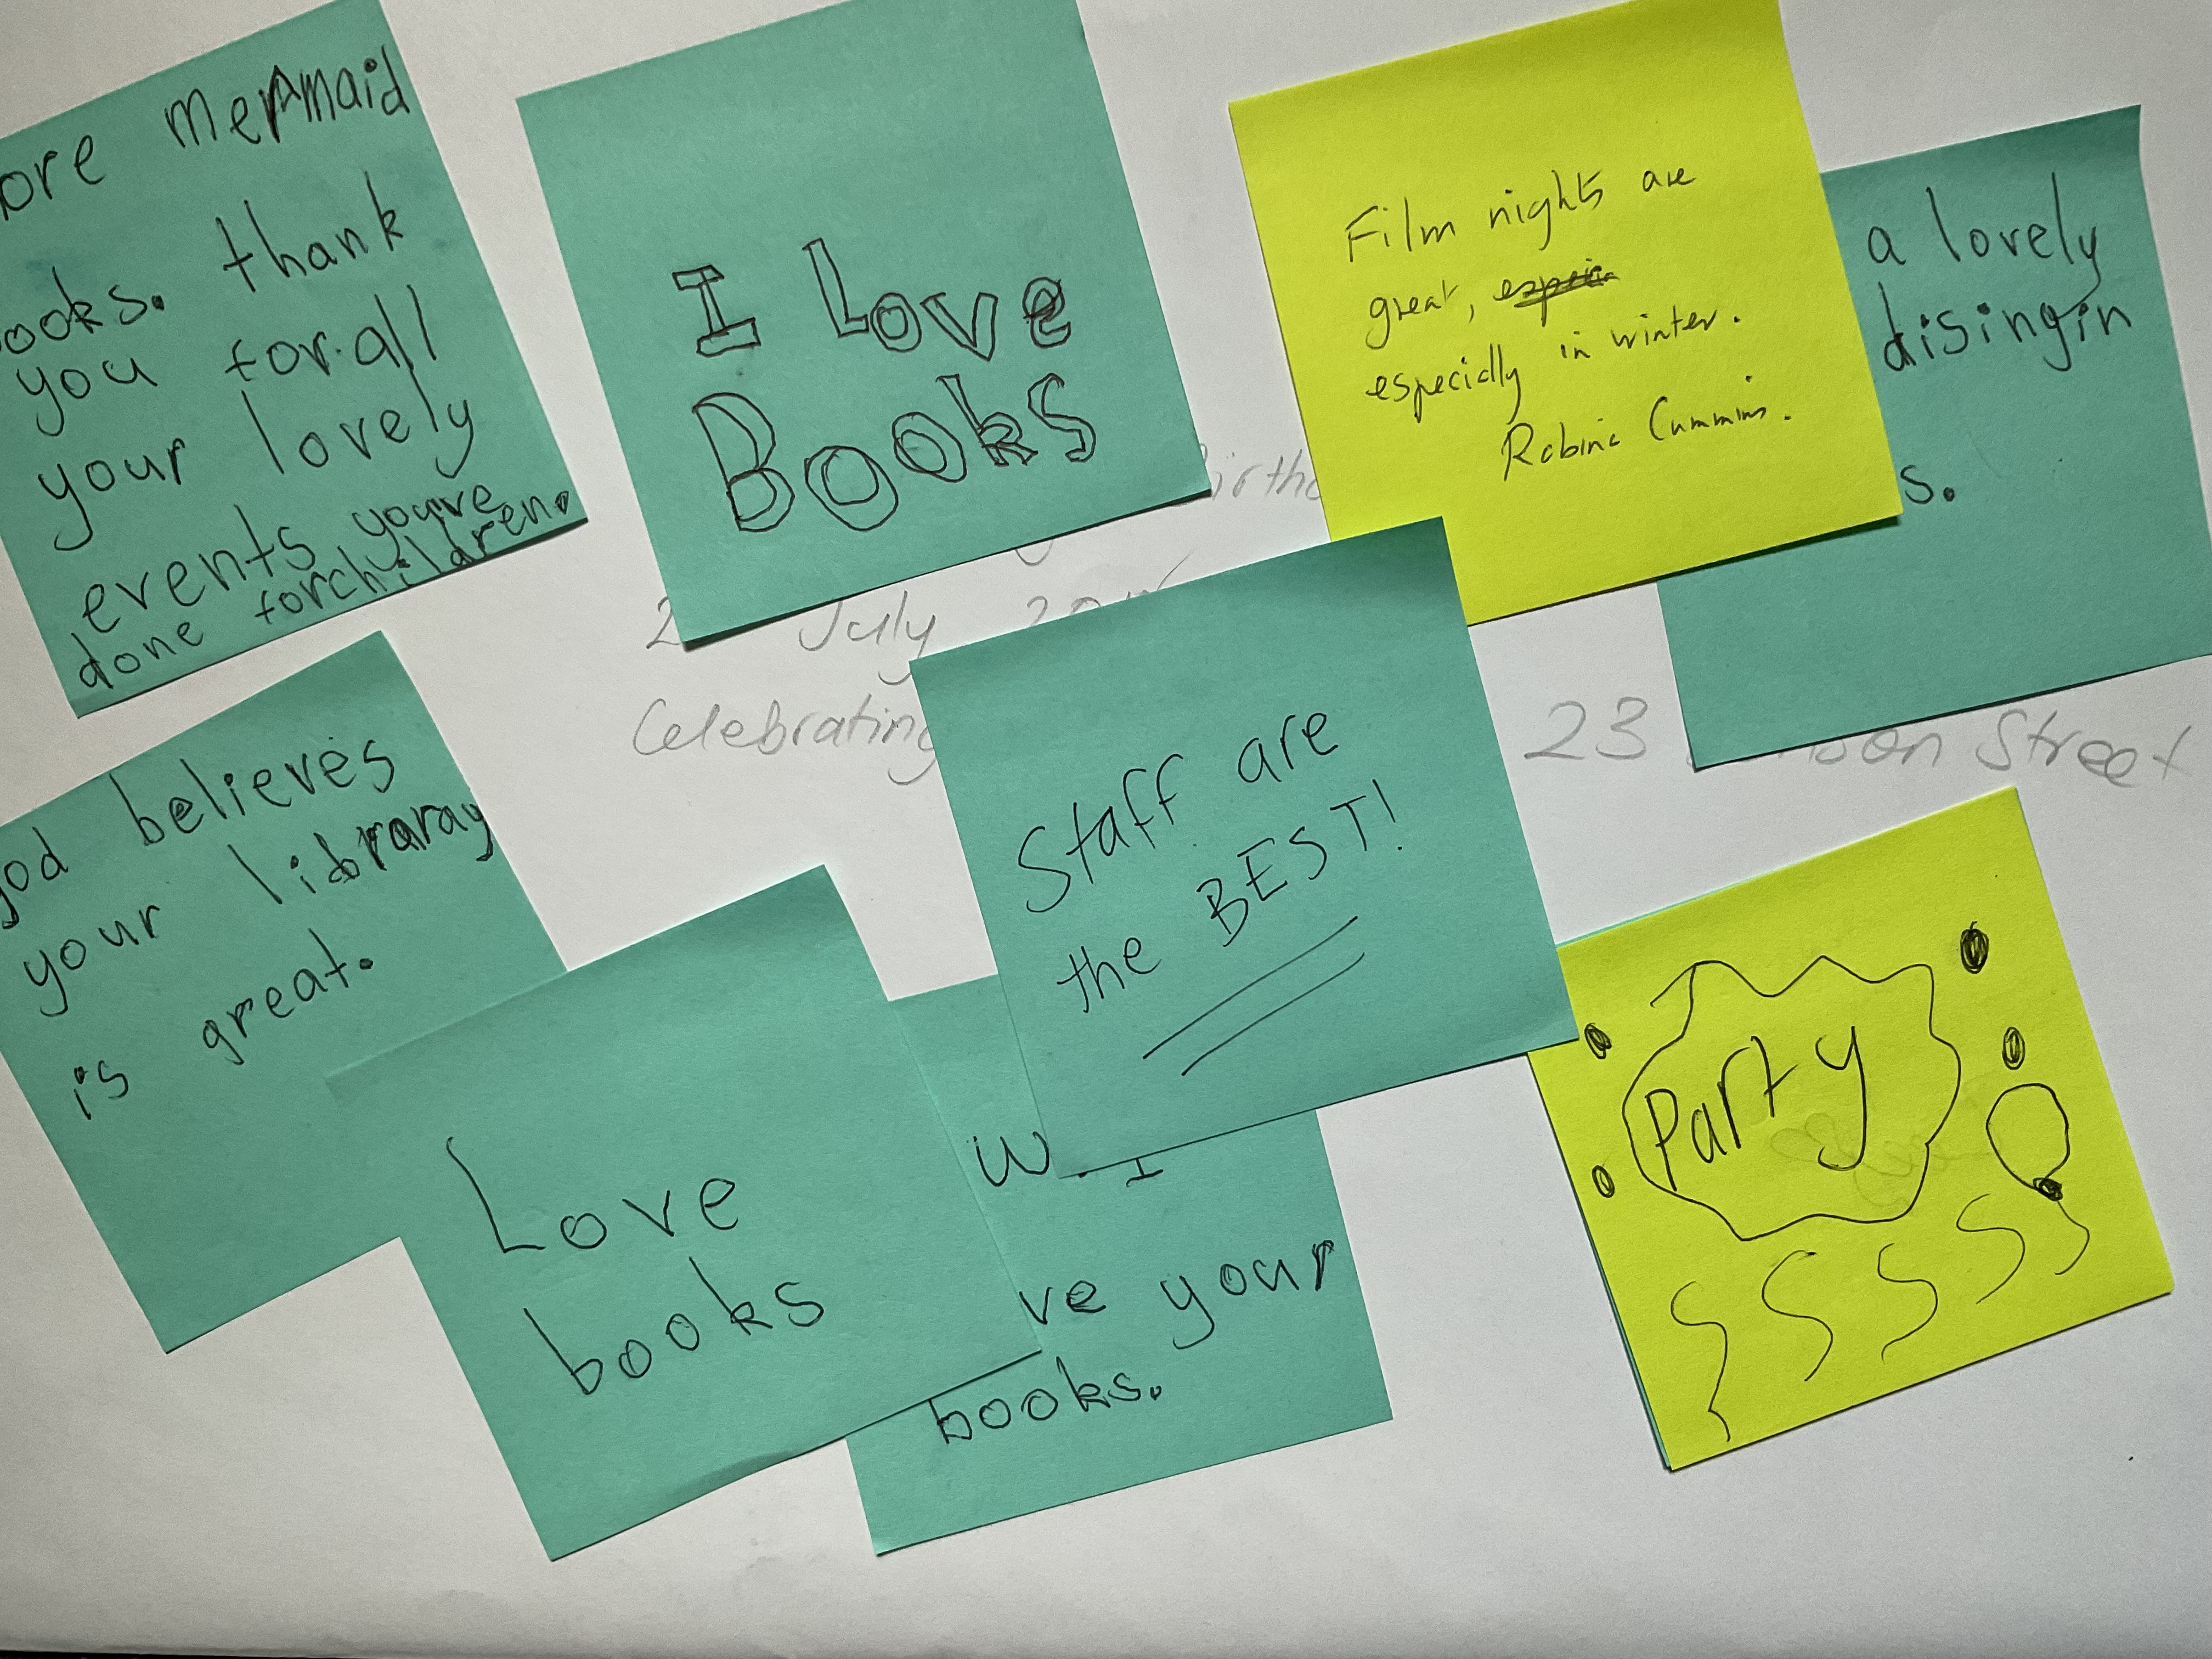 mermaid
thank
you for all
your lovely
events you've
done for children.
I Love
Books
Film nights are
great,
especially in winter.
Cummins.
a lovely
disingin
July
Celebrating
23
Street
believes
your libraray
is great.
Staff are
the BEST!
Love
books
your
books.
Party